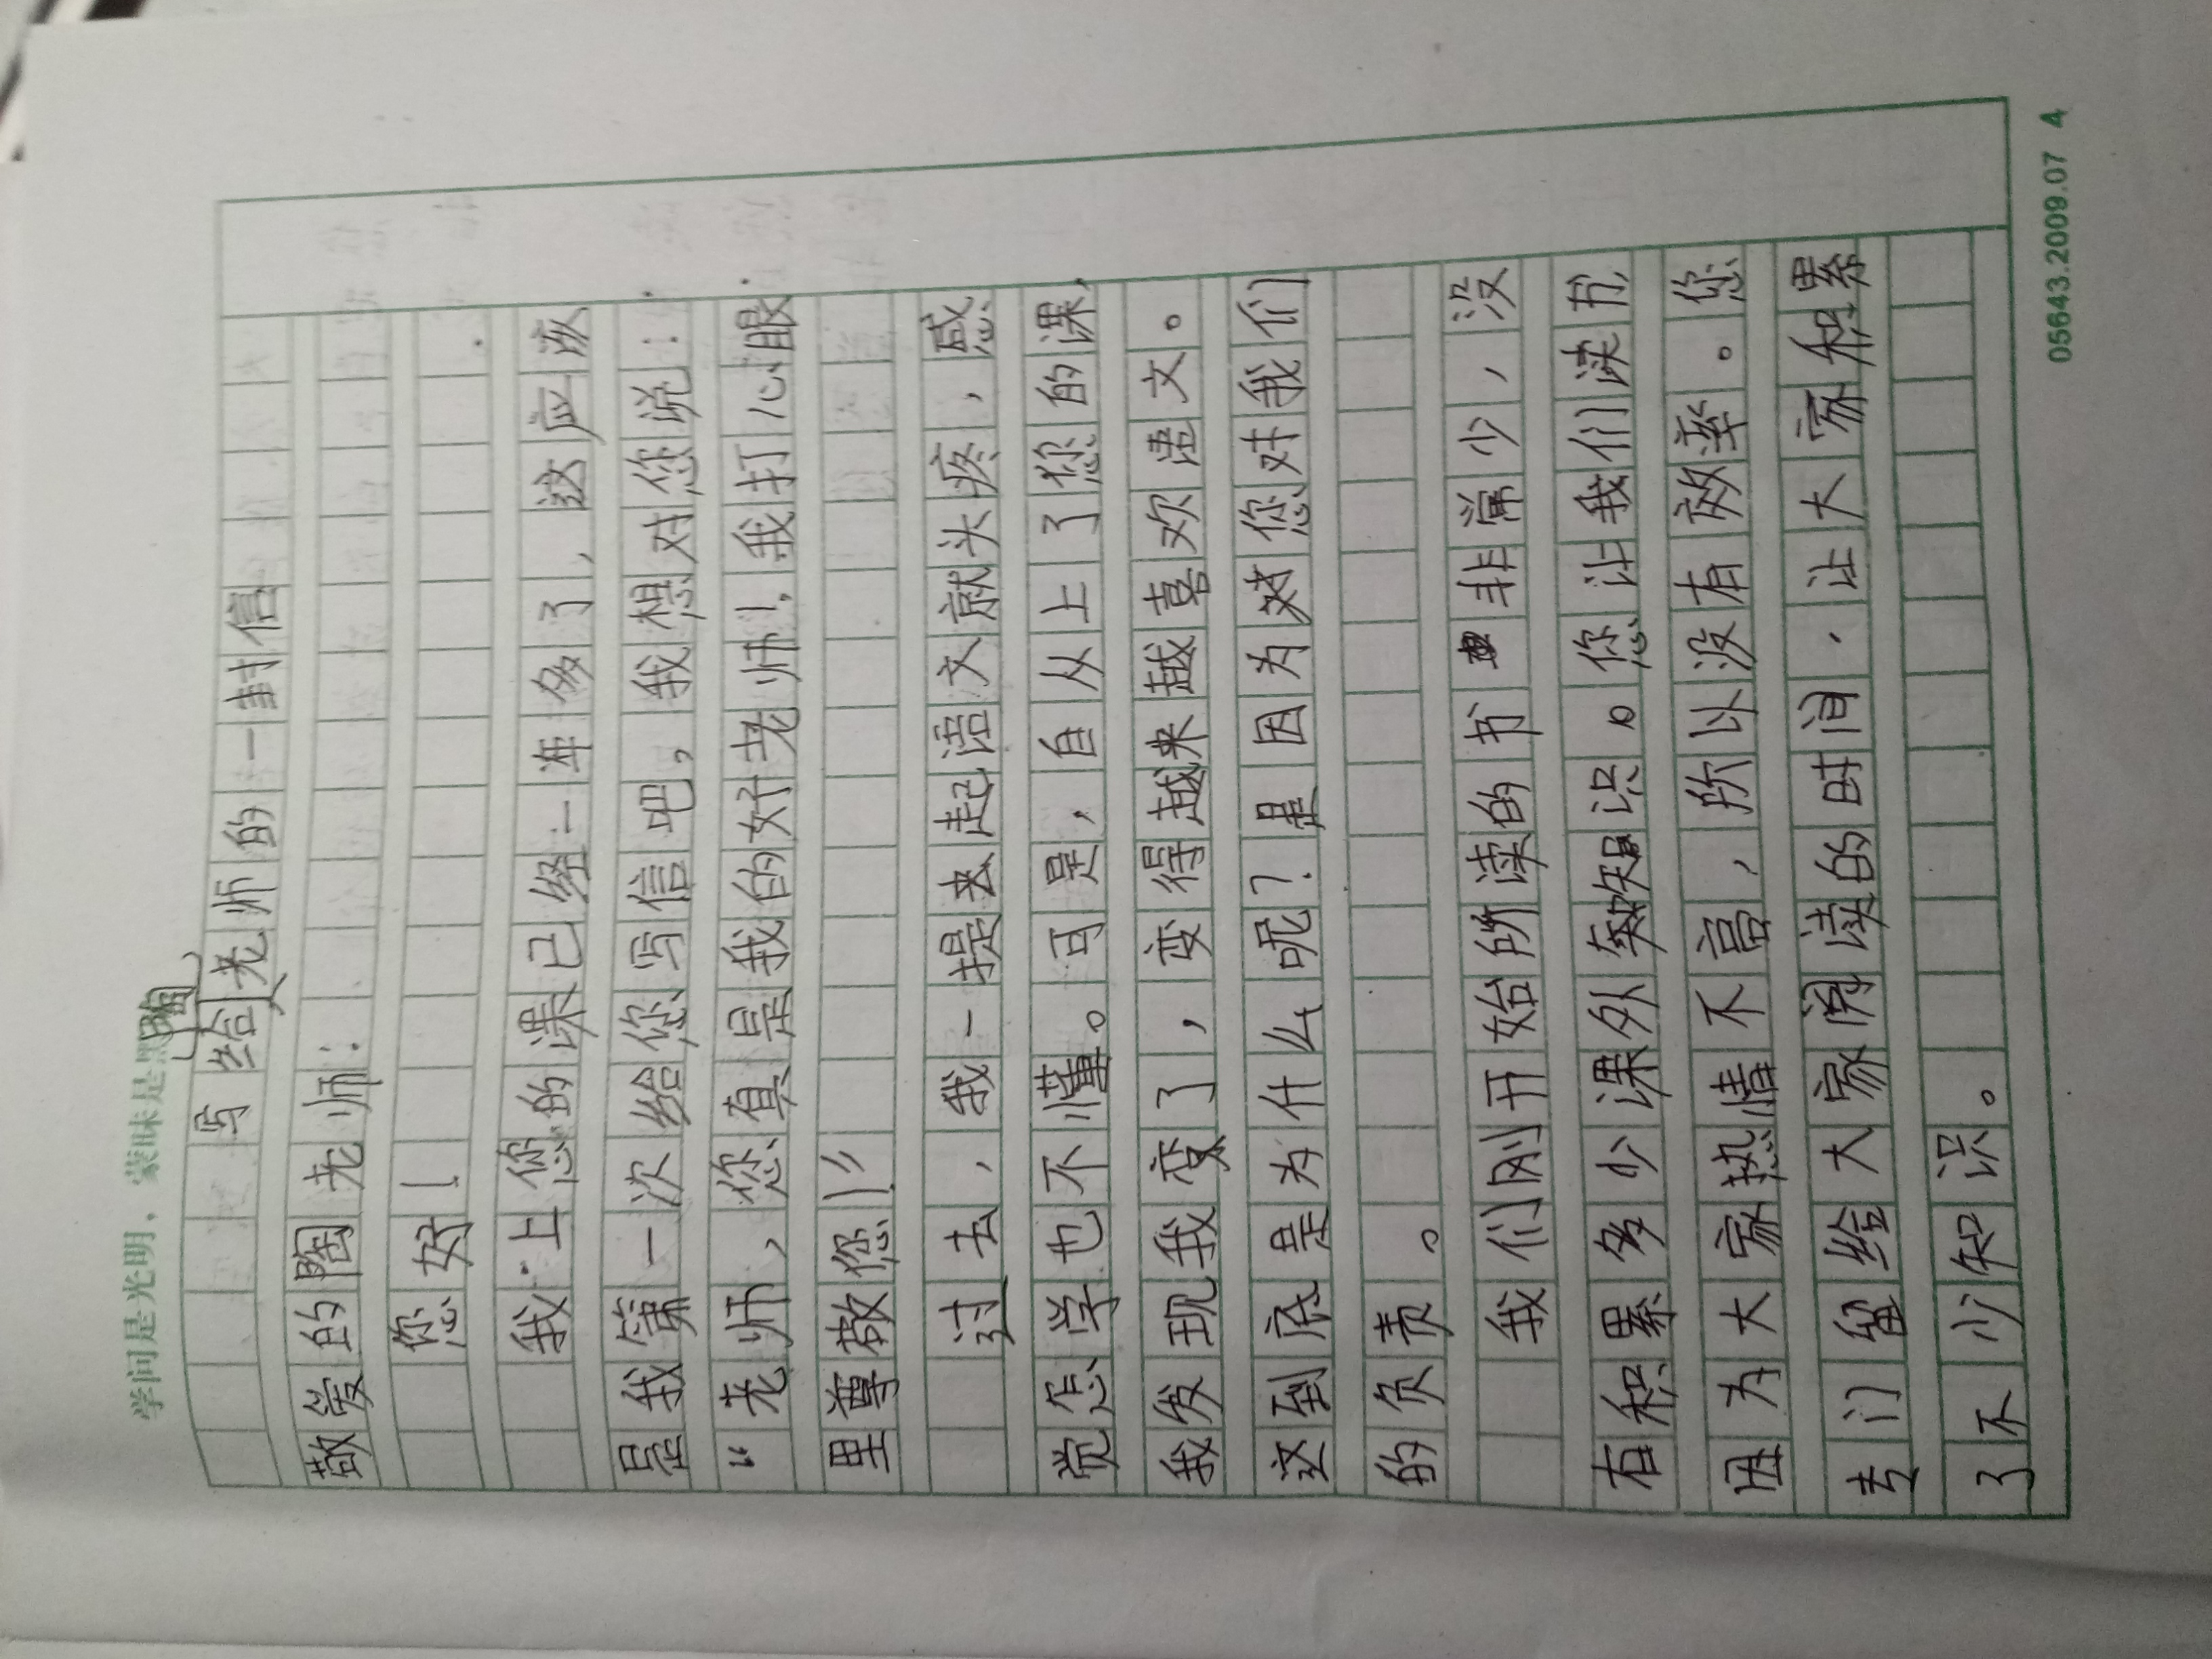 学问是光明，蒙昧是黑
写给陶老师的一封信
敬爱的陶老师：
您好！
我上您的课已经一年多了，这应该
是我第一次给您写信吧，我想对您说：
“老师，您真是我的好老师！我打心眼
里尊敬您！”
过去，我一提来起语文就头疼，感
觉怎学也不懂。可是，自从上了您的课，
我发现我变了，变得越来越喜欢语文。
这到底是为什么呢？是因为您对我们
的负责。
我们刚开始所读的书非常少，没
有积累多少课外知识。您让我们读书，
因为大家热情不高，所以没有效率。您
专门留给大家阅读的时间，让大家积累
了不少知识。
05643.2009.07 4